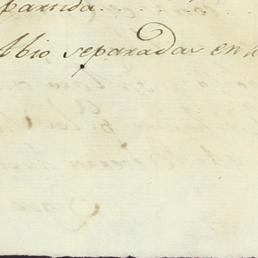 partida . . . . . .
Abio separadas en